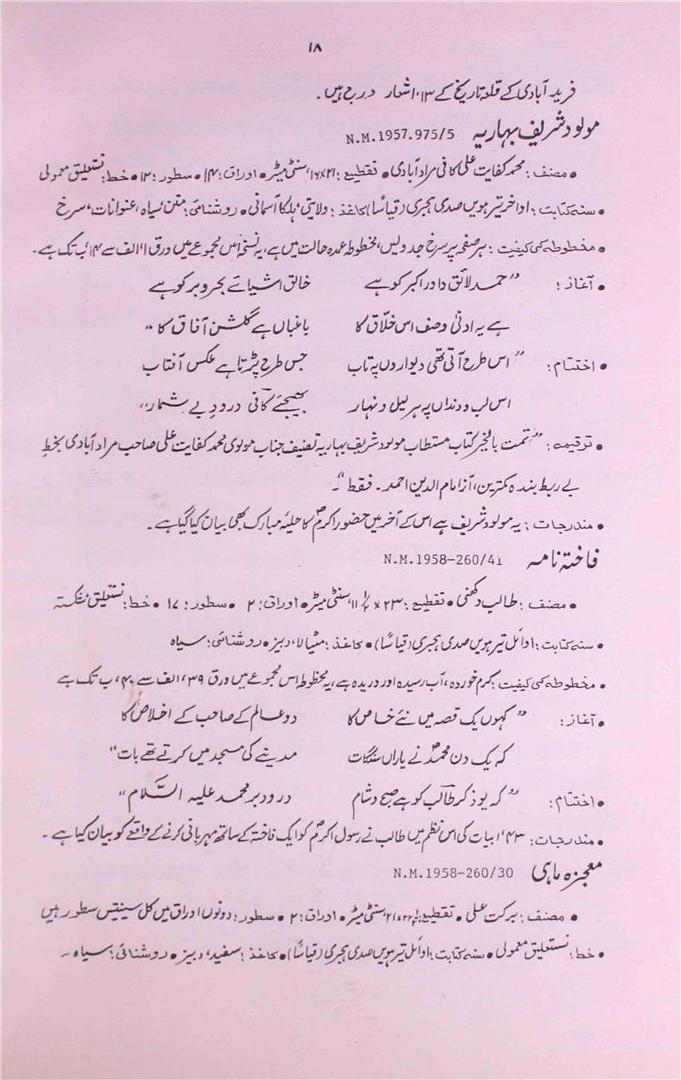 ۱۸
فرید آبادی کے قطعہ تاریخ کے ۱۳، اشعار درج ہیں۔
مولود شریف بہاریہ N.M.1957.975/5
• مصنف: محمد کفایت علی کافی مراد آبادی • تقطیع: ۲۱×۱۶ سنٹی میٹر • اوراق: ۱۴ • سطور: ۱۲ • خط: نستعلیق معمولی
• سنہ کتابت: اواخر تیرہویں صدی ہجری (قیاسًا) • کاغذ: ولایتی ہلکا آسمانی • روشنائی: متن سیاہ، عنوانات، سرخ
• مخطوطہ کی کیفیت: ہر صفحہ پر سرخ جدولیں، مخطوطہ عمدہ حالت میں ہے، یہ نسخہ اس مجموعے میں ورق ۱، الف سے ۱۴، ب تک ہے۔
• آغاز: "حمد لائق داور اکبر کو ہے خالق اشیائے بحر و بر کو ہے
ہے یہ ادنیٰ وصف اس خلّاق کا باغباں ہے گلشنِ آفاق کا"
• اختتام: "اس طرح آتی تھی دیواروں پہ تاب جس طرح پڑتا ہے عکس آفتاب
اس لب و دنداں پہ ہر لیل و نہار بھیجئے کافی درودِ بے شمار"
• ترقیمہ: "تمت بالخیر کتاب مستطاب مولود شریف بہاریہ تصنیف جناب مولوی محمد کفایت علی صاحب مراد آبادی بخطِ
بے ربط بندہ کمترین، از امام الدین احمد۔ فقط"۔
• مندرجات: یہ مولود شریف ہے اس کے آخر میں حضور اکرمؐ کا حلیۂ مبارک بھی بیان کیا گیا ہے۔
فاختہ نامہ N.M.1958-260/41
• مصنف: طالب دکھنی • تقطیع: ۲۳× سنٹی میٹر • اوراق: ۲ • سطور: ۱۷ • خط: نستعلیق شکستہ
• سنہ کتابت: اوائل تیرہویں صدی ہجری (قیاسًا) • کاغذ: مٹیالا، دبیز • روشنائی: سیاہ
• مخطوطہ کی کیفیت: کرم خوردہ، آب رسیدہ اور دریدہ ہے، یہ مخطوطہ اس مجموعے میں ورق ۳۹، الف سے ۴۰، ب تک ہے
• آغاز: "کہوں یک قصہ میں نئے خاص کا دو عالم کے صاحب کے اخلاص کا
کہ یک دن محمدؐ نے یاراں سنگات مدینے کی مسجد میں کرتے تھے بات"
• اختتام: "کہ یو ذکر طالب کو ہے صبح و شام درود بر محمد علیہ السَّلام"
• مندرجات: ۴۳، ابیات کی اس نظم میں طالب نے رسول اکرمؐ کو ایک فاختہ کے ساتھ مہربانی کرنے کے واقعے کو بیان کیا ہے۔
معجزہ ماہی N.M.1958-260/30
• مصنف: برکت علی • تقطیع: سنٹی میٹر • اوراق: ۲ • سطور: دونوں اوراق میں کل سینتیس سطور ہیں
• خط: نستعلیق معمولی • سنہ کتابت: اوائل تیرہویں صدی ہجری (قیاسًا) • کاغذ: سفید، دبیز • روشنائی: سیاہ۔